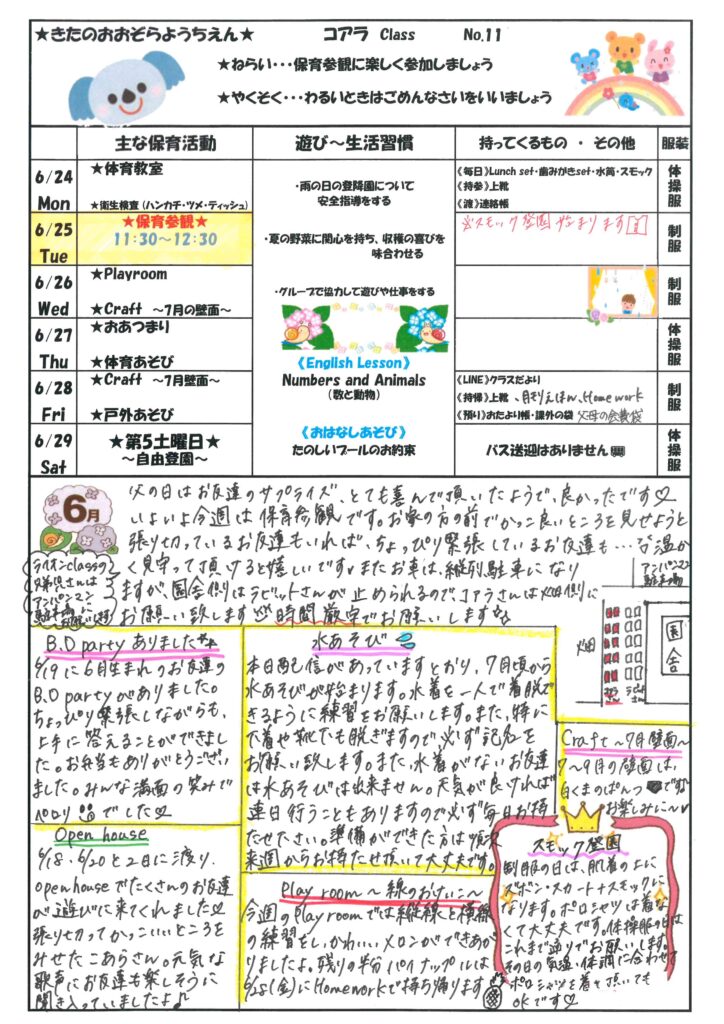 ★きたのおおぞらようちえん★ コアラ Class No.11
★ねらい・・・保育参観に楽しく参加しましょう
★やくそく・・・わるいときはごめんなさいをいいましょう
主な保育活動 遊び～生活習慣 持ってくるもの ・ その他 服装
6/24 Mon
★体育教室
★衛生検査（ハンカチ・ツメ・ティッシュ）
《毎日》Lunch set・歯みがきset・水筒・スモック
《持参》上靴
《渡》連絡帳
体操服
6/25 Tue
★保育参観★
11:30～12:30
※スモック登園始まります
制服
6/26 Wed
★Playroom
★Craft ～7月の壁面～
制服
6/27 Thu
★おあつまり
★体育あそび
体操服
6/28 Fri
★Craft ～7月壁面～
★戸外あそび
《LINE》クラスだより
《持帰》上靴、月刊えほん、Homework
《預り》おたより帳・課外の袋 父母の会費袋
制服
6/29 Sat
★第5土曜日★
～自由登園～
バス送迎はありません
体操服
・雨の日の登降園について
安全指導をする
・夏の野菜に関心を持ち、収穫の喜びを
味合わせる
・グループで協力して遊びや仕事をする
《English Lesson》
Numbers and Animals
（数と動物）
《おはなしあそび》
たのしいプールのお約束
6月
父の日はお友達のサプライズ、とても喜んで頂いたようで、良かったです♡
いよいよ今週は保育参観です。お家の方の前でかっこ良いところを見せようと
張り切っているお友達もいれば、ちょっぴり緊張しているお友達も…な温か
く見守って頂けると嬉しいです♥ またお車は、縦列駐車になり
ますが、園舎側はラビットさんが止められるので、コアラさんは畑側に
お願い致します 時間厳守でお願いします
ライオンclassの
兄弟児さんは
アンパンマン
駐車場に
お願いします
アンパンマン
駐車場
畑
園舎
コアラさん
ラビットさん
B.D partyありました
6/19に6月生まれのお友達の
B.D partyがありました。
ちょっぴり緊張しながらも、
上手に答えることができまし
た。お弁当もありがとうござい
ました。みんな満面の笑みで
ペロリでした♡
Open house
6/18・6/20と2日に渡り、
open houseでたくさんのお友達
が遊びに来てくれました♡
張り切ってかっこいいところを
みせたこあらさん。元気な
歌声にお友達も楽しそうに
聞き入っていましたよ♪
水あそび
本日配信があっていますとおり、7月頃から
水あそびが始まります。水着を一人で着脱で
きるように練習をお願いします。また、特に
下着や靴下も脱ぎますので必ず記名を
お願い致します。また、水着がないお友達
は水あそびは出来ません。天気が良ければ
連日行うこともありますので必ず毎日お持
たせ下さい。準備ができた方は順次
来週からお持たせ頂いて大丈夫です。
Play room～線のおけいこ～
今週のPlay roomでは縦線と横線
の練習をし、かわいいメロンができあが
りましたよ。残りの半分パイナップルは
6/28(金)にHomeworkで持ち帰ります
Craft～7月壁面～
7～9月の壁面は、
白くまのぱんつ です
お楽しみに～♥
スモック登園
制服の日は、肌着の上に
ズボン・スカート+スモックに
なります。ポロシャツは着な
くて大丈夫です。体操服の日は
これまで通りでお願いします。
その日の気温・体調に合わせて
ポロシャツを着て頂いても
OKです♡